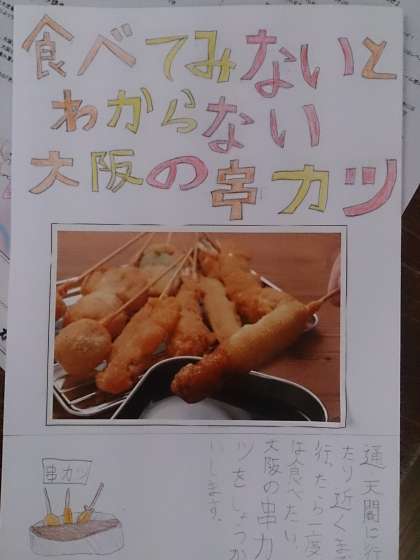 食べてみないと
わからない
大阪の串カツ
串カツ
通天閣に行
たり近くを
行ったら一度
は食べたい、
大阪の串カ
ツをしょうか
いします。